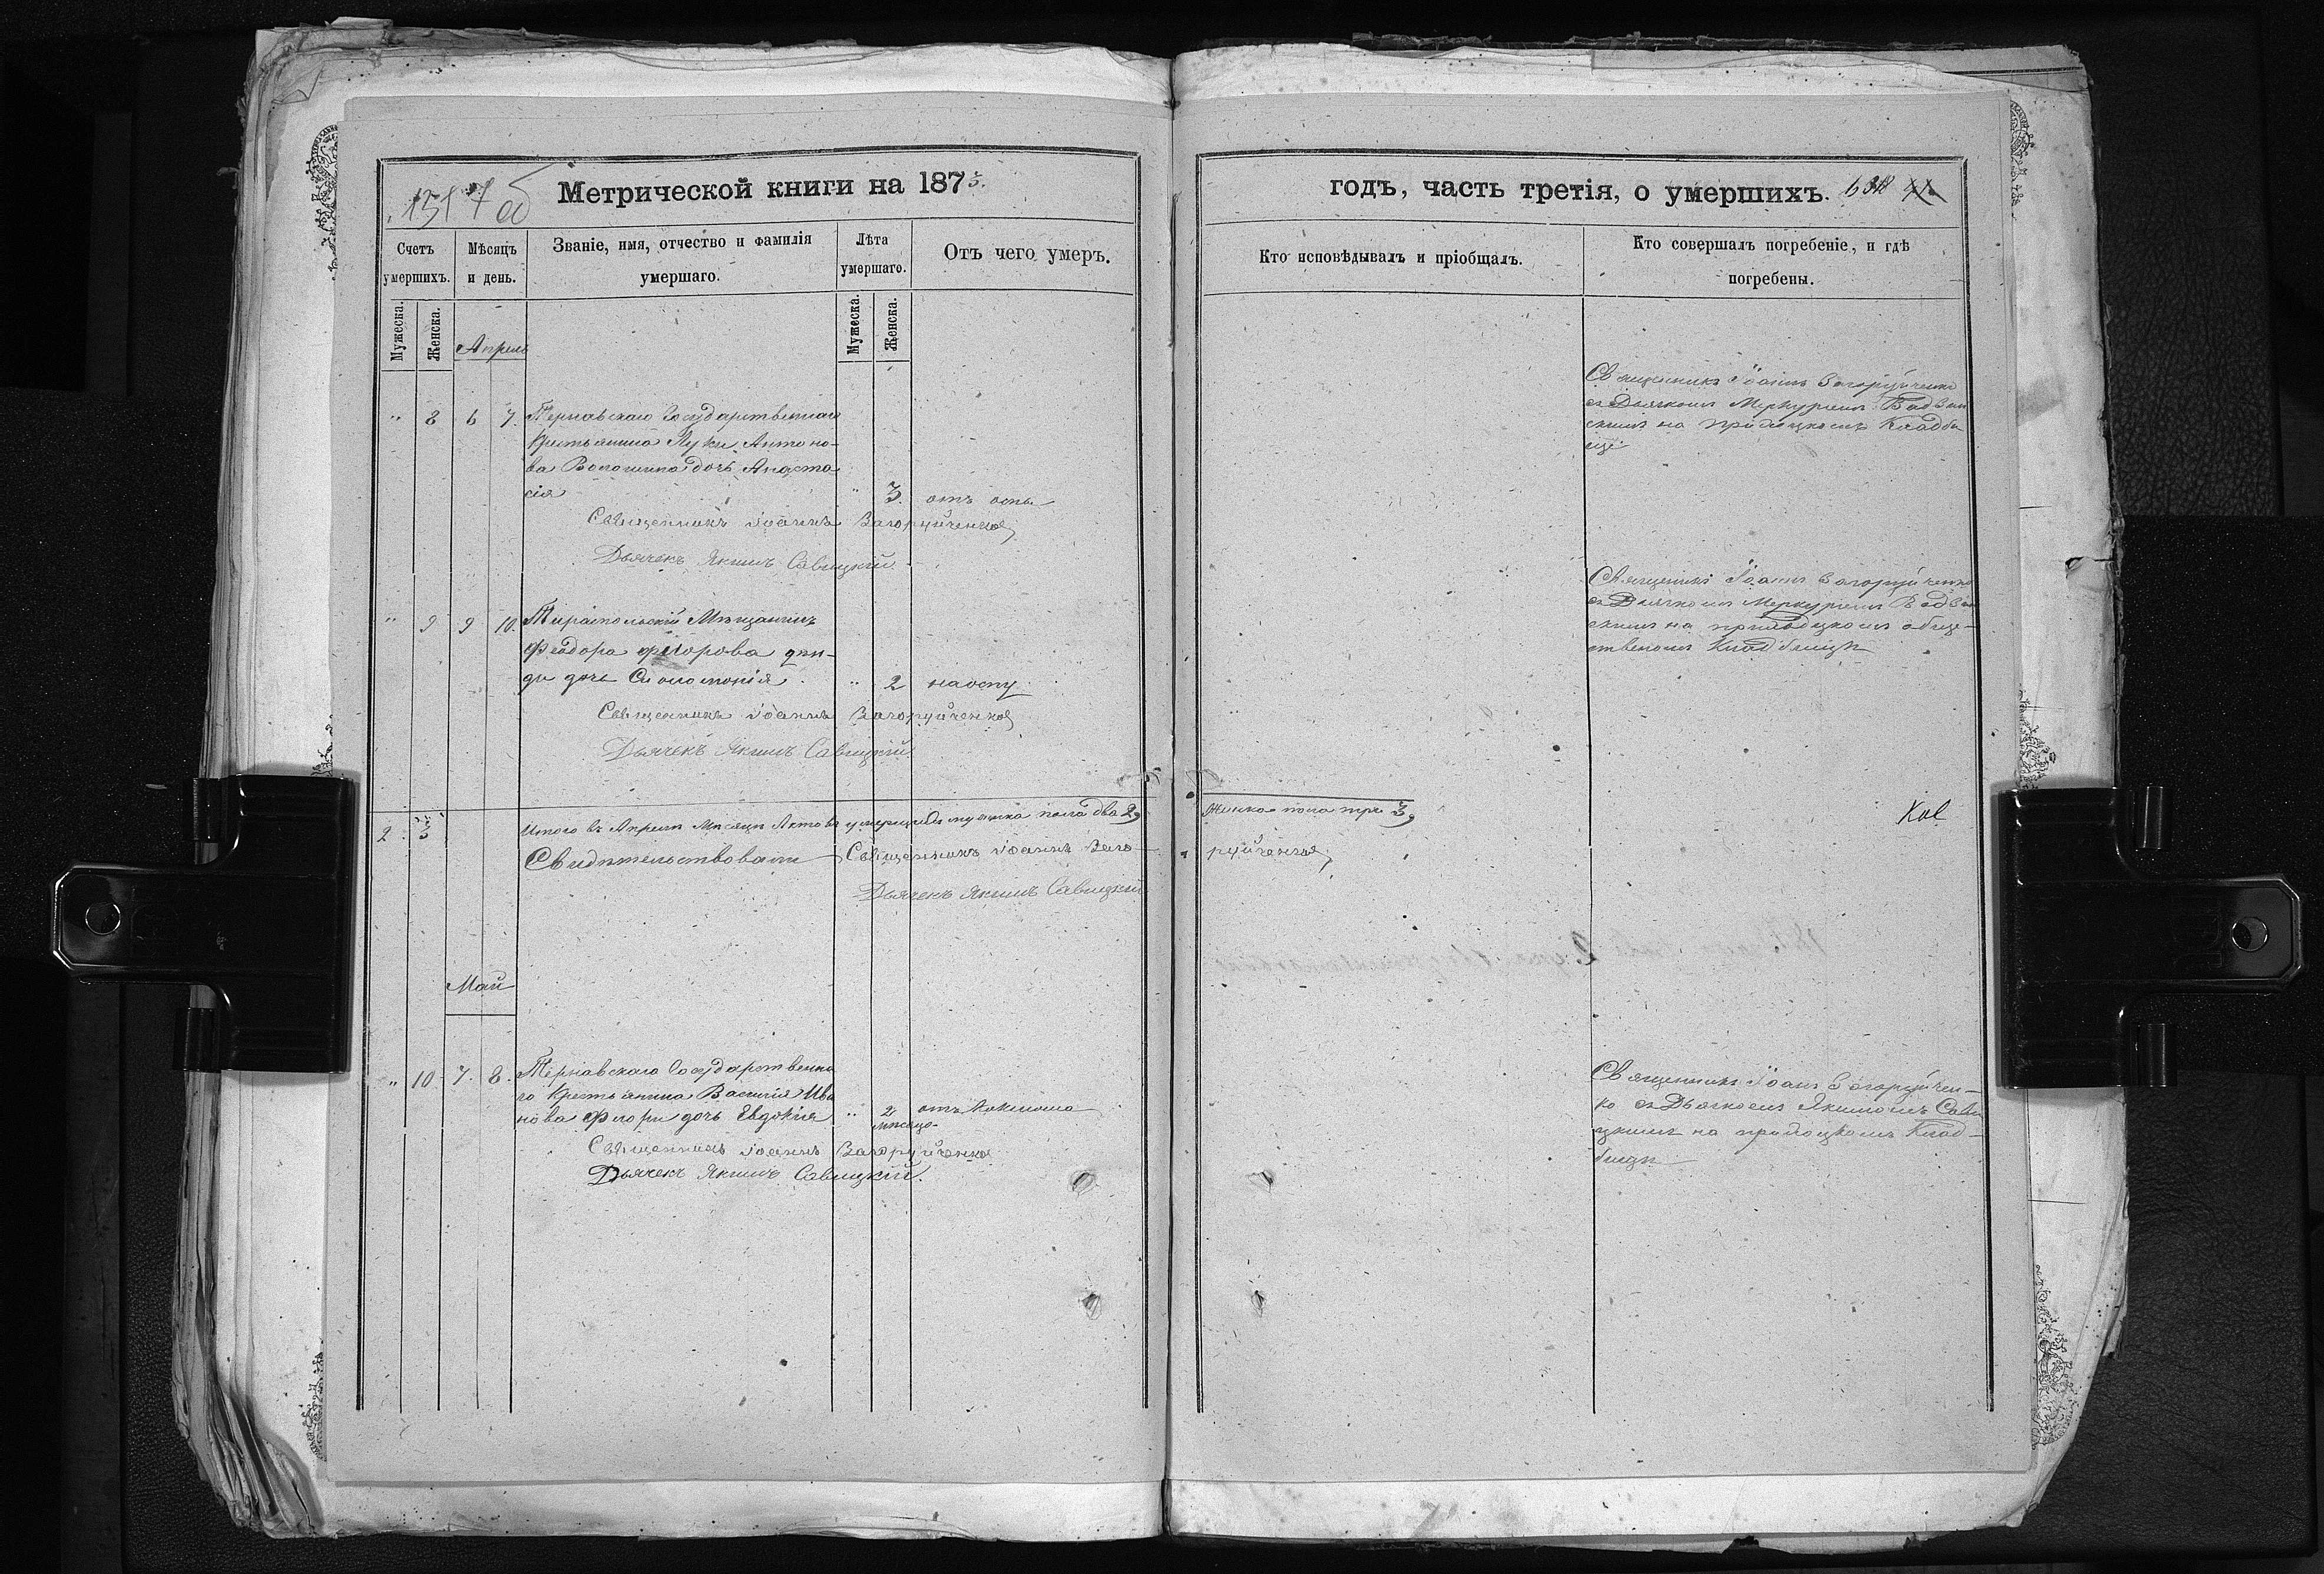 1517 об
Метрической книги на 1873.
годъ, часть третія, о умершихъ.
Счетъ умершихъ.
Мѣсяцъ и день.
Званіе, имя, отчество и фамилія умершаго.
Лѣта умершаго.
Отъ чего умеръ.
Кто исповѣдывалъ и пріобщалъ.
Кто совершалъ погребеніе, и гдѣ погребены.
Мужеска.
Женска.
Мужеска.
Женска.
Апрель
" 8 6 7. Тернавскаго Государственнаго
Крестьянина Луки Антоно-
ва Волошина дочь Анаста
сія " 3. отъ оспы
Священникъ Іоаннъ Загоруйченко
Дьячекъ Якимъ Савицкій
Священникъ Іоаннъ Загоруйченко
съ Дьячкомъ Меркуріемъ
скимъ на приходскомъ Кладби
щѣ
" 9 9 10. Тираспольскій Мѣщанинъ
Феодора
ди дочь Соломонія " 2 на оспу
Священникъ Іоаннъ Загоруйченко
Дьячекъ Якимъ Савицкій
Священникъ Іоаннъ Загоруйченко
съ Дьячкомъ Меркуріемъ
скимъ на приходскомъ обще-
ственомъ Кладбищѣ
2 3 Итого въ Апрелѣ Мѣсяцѣ умершихъ мужска пола два 2,
женска пола три 3,
Свидѣтельствовали Священникъ Іоаннъ Заго-
руйченко,
Дьячекъ Якимъ Савицкій
Май
" 10 7. 8. Тернавскаго Государственна
го Крестьянина Василія Ива
нова Флори дочь Евдокія " 2 мѣсяцо- отъ Коклюша
Священникъ Іоаннъ Загоруйченко
Дьячекъ Якимъ Савицкій.
Священникъ Іоанъ Загоруйчен-
ко съ Дьячкомъ Якимомъ Сави
цкимъ на приходскомъ Клад-
бищѣ